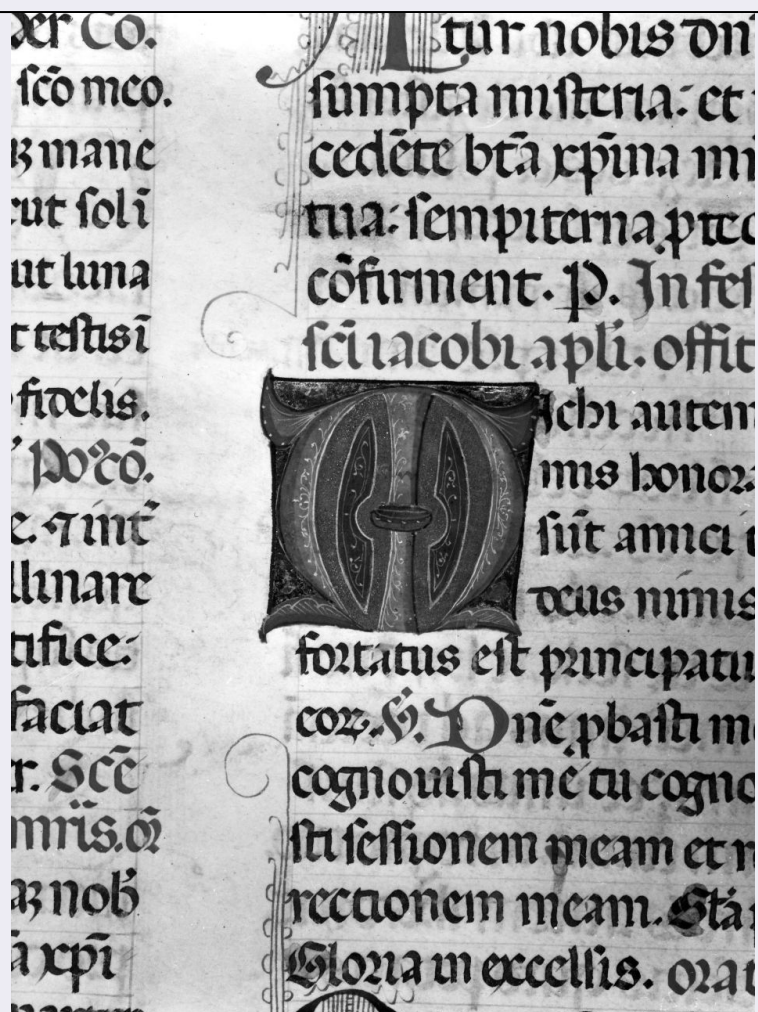 der Co.
sc̄o meo.
ꝫ mane
cut soli̅
ut luna
t testis i̅
fidelis.
Poꝛco̅.
e. ⁊ int̅
llinare
tifice:
faciat
r. Sce̅
mr̄is. or̅
aꝫ nob̅
a̅ xp̅i
tur nobis dn̅
sumpta misteria: et
cedēte bt̄a xp̄ina mi
tua: sempiterna ꝓtec
cōfirment. P. In fes
sc̄i iacobi apl̄i. offit
Michi autem
nimis honora
sūt amici
deus nimis
fortatus est principatu
coꝝ. ℣. Dn̄e ꝓbasti m
cognouisti me tu cogno
sti sessionem meam et r
rectionem meam.
Gloria in excelsis. orat